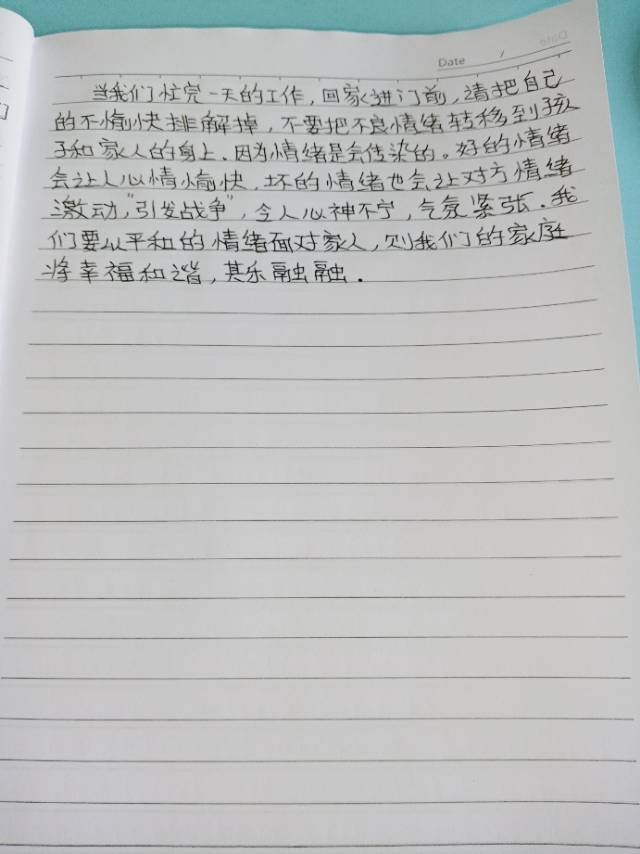 Date /
当我们忙完一天的工作,回家进门前,请把自己
的不愉快排解掉,不要把不良情绪转移到孩
子和家人的身上.因为情绪是会传染的。好的情绪
会让人心情愉快,坏的情绪也会让对方情绪
激动,"引发战争",令人心神不宁,气氛紧张.我
们要以平和的情绪面对家人,则我们的家庭
将幸福和谐,其乐融融.